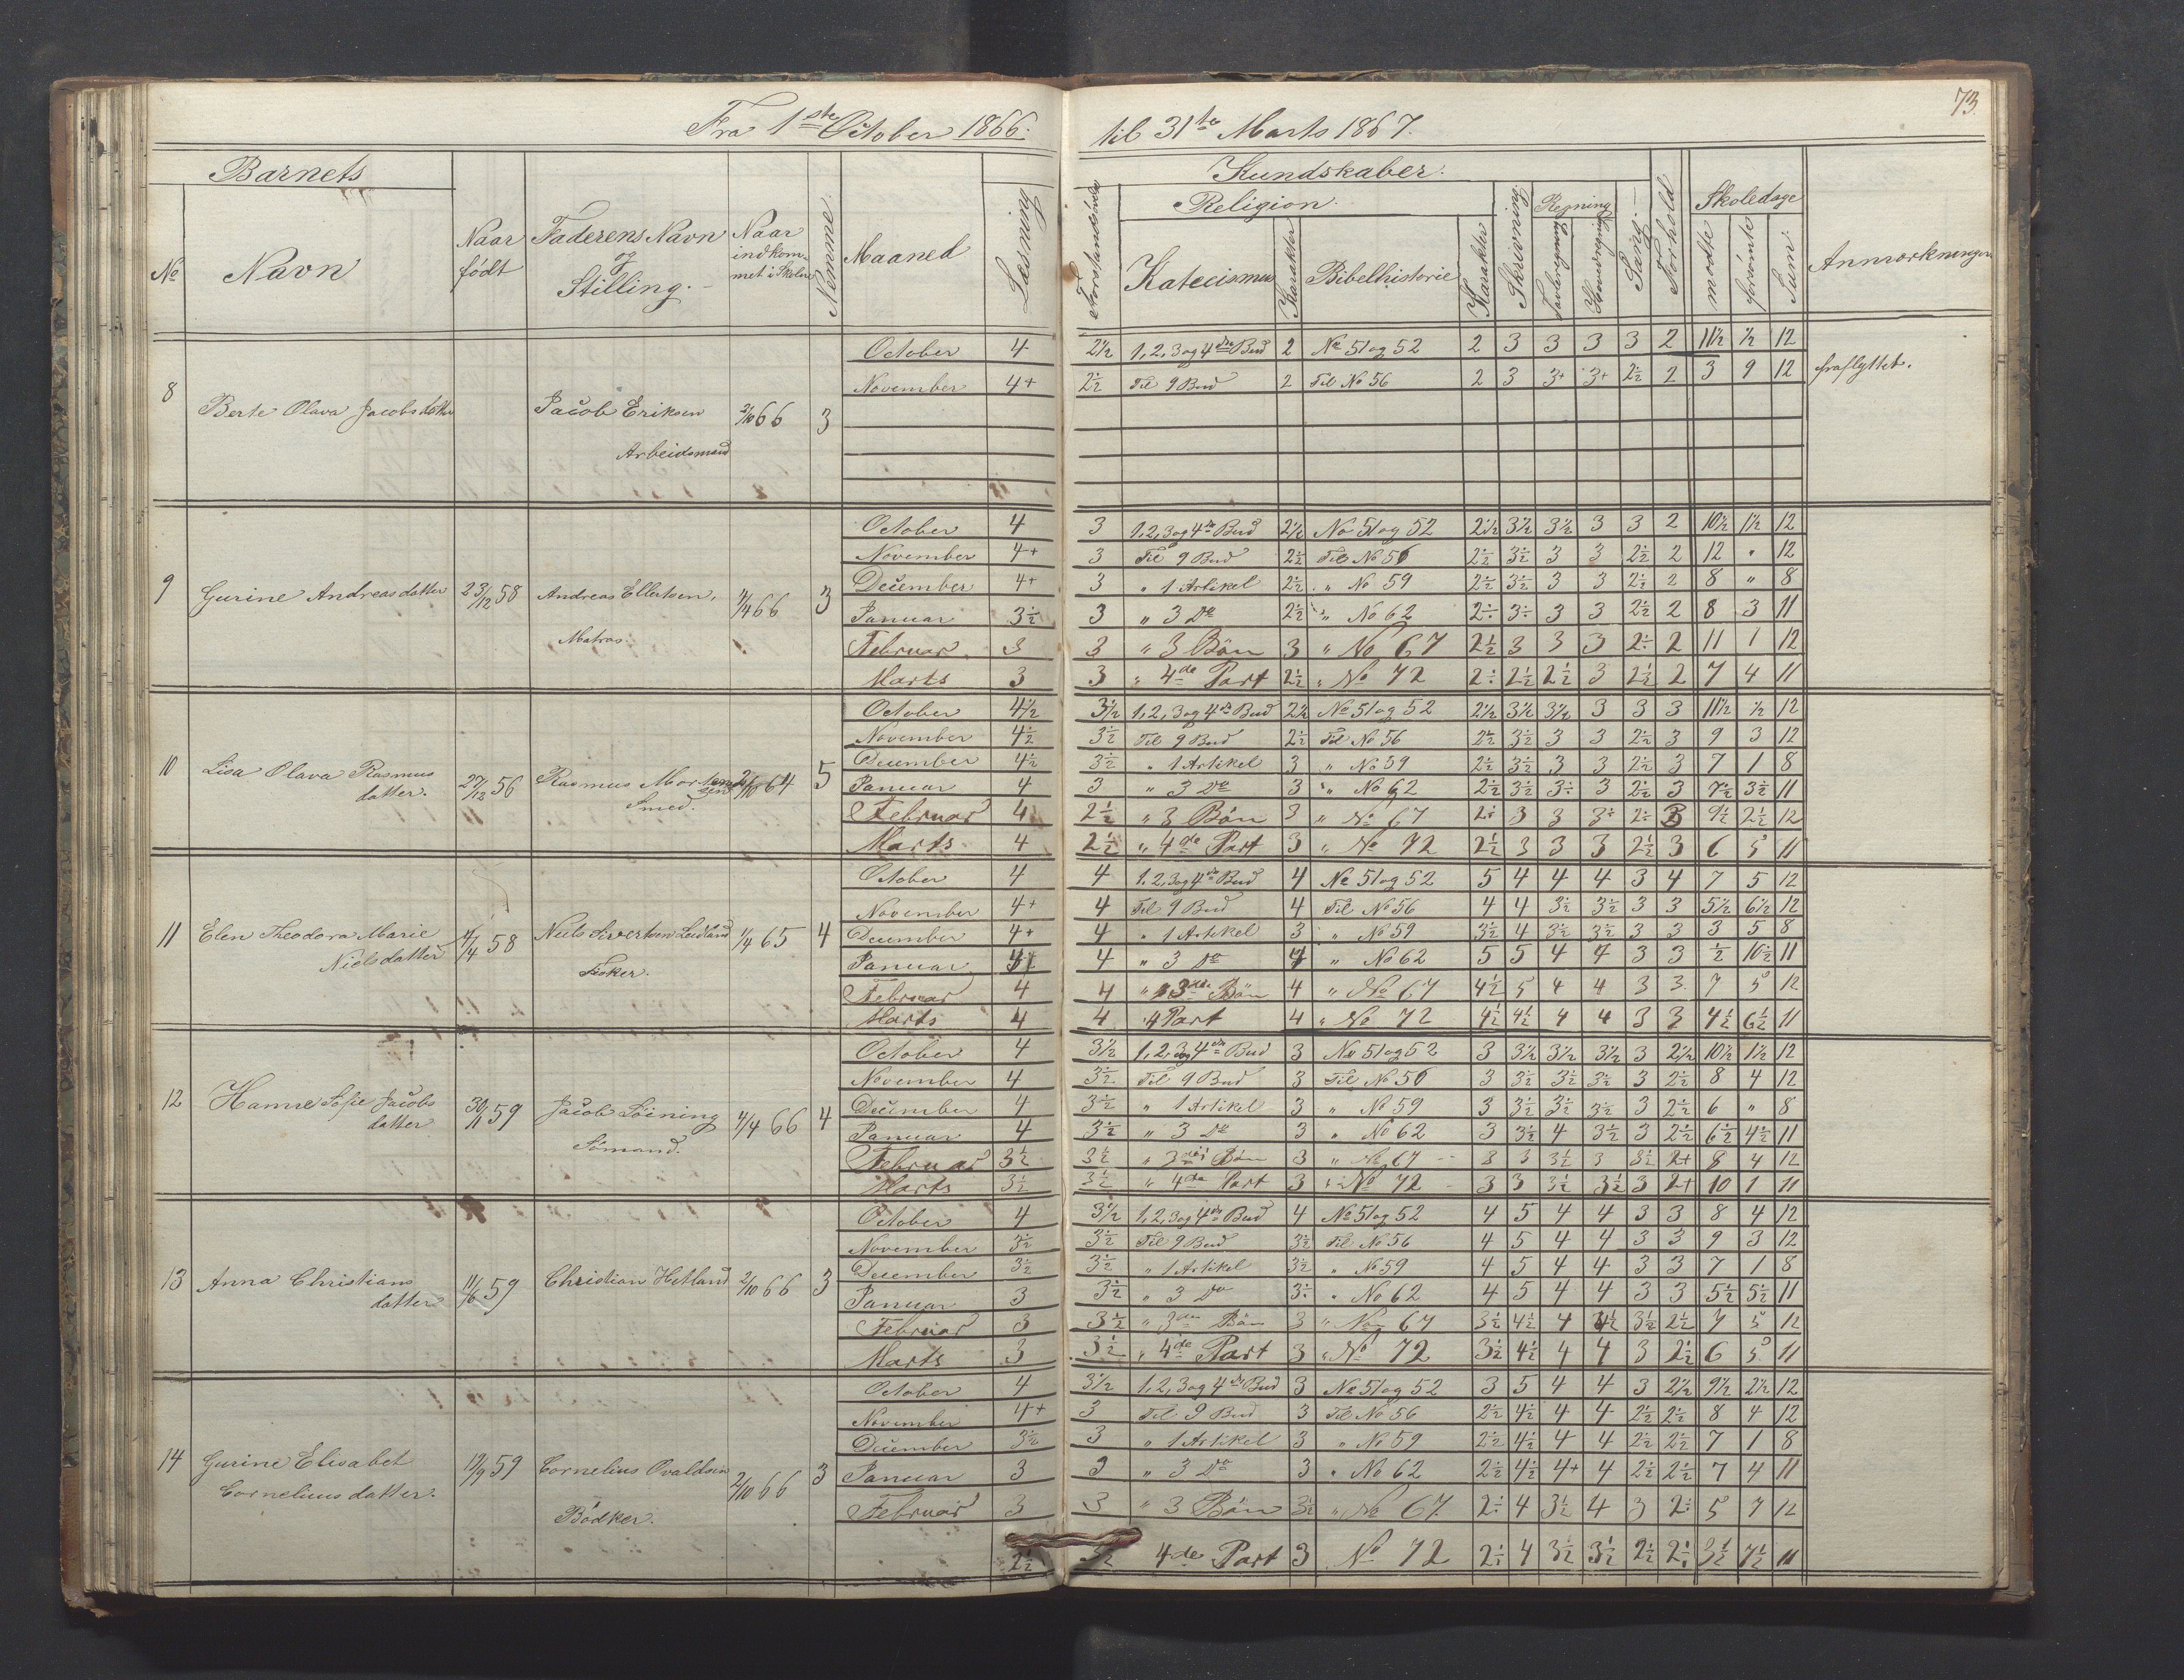 73.
Fra 1ste October 1866. til 31te Marts 1867.
Barnets Kundskaber.
Religion. Regning Skoledage
No Navn Naar født Faderens Navn og Stilling. Naar indkommet i Skolen Nemme. Maaned Læsning Forstandsøvelse Katecismus Karakter Bibelhistorie Karakter Skrivning Tavleregning Hovedregning Sang. Forhold mødte forsømte Sum. Anmærkninger
8 Berte Olava Jacobsdatter Jacob Eriksen Arbeidsmand 2/10 66 3
October 4 2½ 1, 2, 3 og 4de Bud 2 No 51 og 52 2 3 3 3 3 2 11½ ½ 12
November 4+ 2½ Til 9 Bud 2 Til No 56 2 3 3+ 3+ 2½ 2 3 9 12 fraflyttet.
9 Gurine Andreasdatter 23/12 58 Andreas Ellertsen, Matros. 4/4 66 3
October 4 3 1, 2, 3 og 4de Bud 2½ No 51 og 52 2½ 3½ 3½ 3 3 2 10½ 1½ 12
November 4+ 3 Til 9 Bud 2½ Til No 56 2½ 3½ 3 3 2½ 2 12 " 12
December 4+ 3 " 1 Artikel 2½ " No 59 2½ 3½ 3 3 2½ 2 8 " 8
Januar 3½ 3 " 3 Do 2½ " No 62 2÷ 3÷ 3 3 2½ 2 8 3 11
Februar 3 3 " 3 Bön 3 " No 67 2½ 3 3 3 2÷ 2 11 1 12
Marts 3 3 " 4de Part 2½ " No 72 2÷ 2½ 2½ 3 2½ 2 7 4 11
10 Lisa Olava Rasmusdatter. 27/12 56 Rasmus Mortensen Smed. 2/10 64 5
October 4½ 3½ 1, 2, 3 og 4de Bud 2½ No 51 og 52 2½ 3½ 3½ 3 3 3 11½ ½ 12
November 4½ 3½ Til 9 Bud 2½ Til No 56 2½ 3½ 3 3 2½ 3 9 3 12
December 4½ 3½ " 1 Artikel 3 " No 59 2½ 3½ 3 3 2½ 3 7 1 8
Januar 4 3 " 3 Do 3 " No 62 2½ 3½ 3÷ 3 2½ 3 7½ 3½ 11
Februar 4 2½ " 3 Bön 3 " No 67 2÷ 3 3 3÷ 2÷ 3 9½ 2½ 12
Marts 4 2½ " 4de Part 3 " No 72 2½ 3 3 3 2½ 3 6 5 11
11 Elen Theodora Marie Nielsdatter 4/4 58 Niels Sivertsen Leidland Fisker. 1/4 65 4
October 4 4 1, 2, 3 og 4de Bud 4 No 51 og 52 5 4 4 4 3 4 7 5 12
November 4+ 4 Til 9 Bud 4 Til No 56 4 4 3½ 3½ 3 3 5½ 6½ 12
December 4+ 4 " 1 Artikel 3 " No 59 3½ 4 3½ 3½ 3 3 3 5 8
Januar 4 " 3 Do 4 " No 62 5 5 4 4 3 3 ½ 10½ 11
Februar 4 4 " 3die Bön 4 " No 67 4½ 5 4 4 3 3 7 5 12
Marts 4 4 " 4 Part 4 " No 72 4½ 4½ 4 4 3 3 4½ 6½ 11
12 Hanne Sofie Jacobsdatter 30/11 59 Jacob Söining Sömand. 4/4 66 4
October 4 3½ 1, 2, 3 og 4de Bud 3 No 51 og 52 3 3½ 3½ 3½ 3 2½ 10½ 1½ 12
November 4 3½ Til 9 Bud 3 Til No 56 3 3½ 3½ 3½ 3 2½ 8 4 12
December 4 3½ " 1 Artikel 3 " No 59 3 3½ 3½ 3½ 3 2½ 6 " 8
Januar 4 3½ " 3 Do 3 " No 62 3 3½ 4 3½ 3 2½ 6½ 4½ 11
Februar 3½ 3½ " 3die Bön 3 " No 67 3 3 3½ 3 3½ 2+ 8 4 12
Marts 3½ 3½ " 4de Part 3 " No 72 3 3 3½ 3½ 3 2+ 10 1 11
13 Anna Christiansdatter 11/6 59 Christian Hetland 2/10 66 3
October 4 3½ 1, 2, 3 og 4de Bud 4 No 51 og 52 4 5 4 4 3 3 8 4 12
November 3½ 3½ Til 9 Bud 3½ Til No 56 4 5 4 4 3 3 9 3 12
December 3½ 3½ " 1 Artikel 3½ " No 59 4 5 4 4 3 3 7 1 8
Januar 3 3½ " 3 Do 3÷ " No 62 4 5 4 4 3 3 5½ 5½ 11
Februar 3 3½ " 3die Bön 3 " No 67 3½ 4½ 4 4½ 3½ 2½ 7 5 12
Marts 3 3½ " 4de Part 3 " No 72 3½ 4½ 4 4 3 2½ 6 5 11
14 Gurine Elisabet Corneliusdatter. 19/9 59 Cornelius Ovaldsen Bödker. 2/10 66 3
October 4 3½ 1, 2, 3 og 4de Bud 3 No 51 og 52 3 5 4 4 3 2½ 9½ 2½ 12
November 4+ 3 Til 9 Bud 3 Til No 56 2½ 4½ 4 4 2½ 2½ 8 4 12
December 3½ 3 " 1 Artikel 3 " No 59 2½ 4½ 4 4 2½ 2½ 7 1 8
Januar 3 3 " 3 Do 3 " No 62 2½ 4½ 4+ 4 2½ 2½ 7 4 11
Februar 3 3 " 3 Bön 3½ " No 67. 2÷ 4 3½ 4 3 2÷ 5 7 12
2½ 3½ 4de Part 3 No 72 2÷ 4 3½ 3½ 2½ 2÷ 3½ 7½ 11